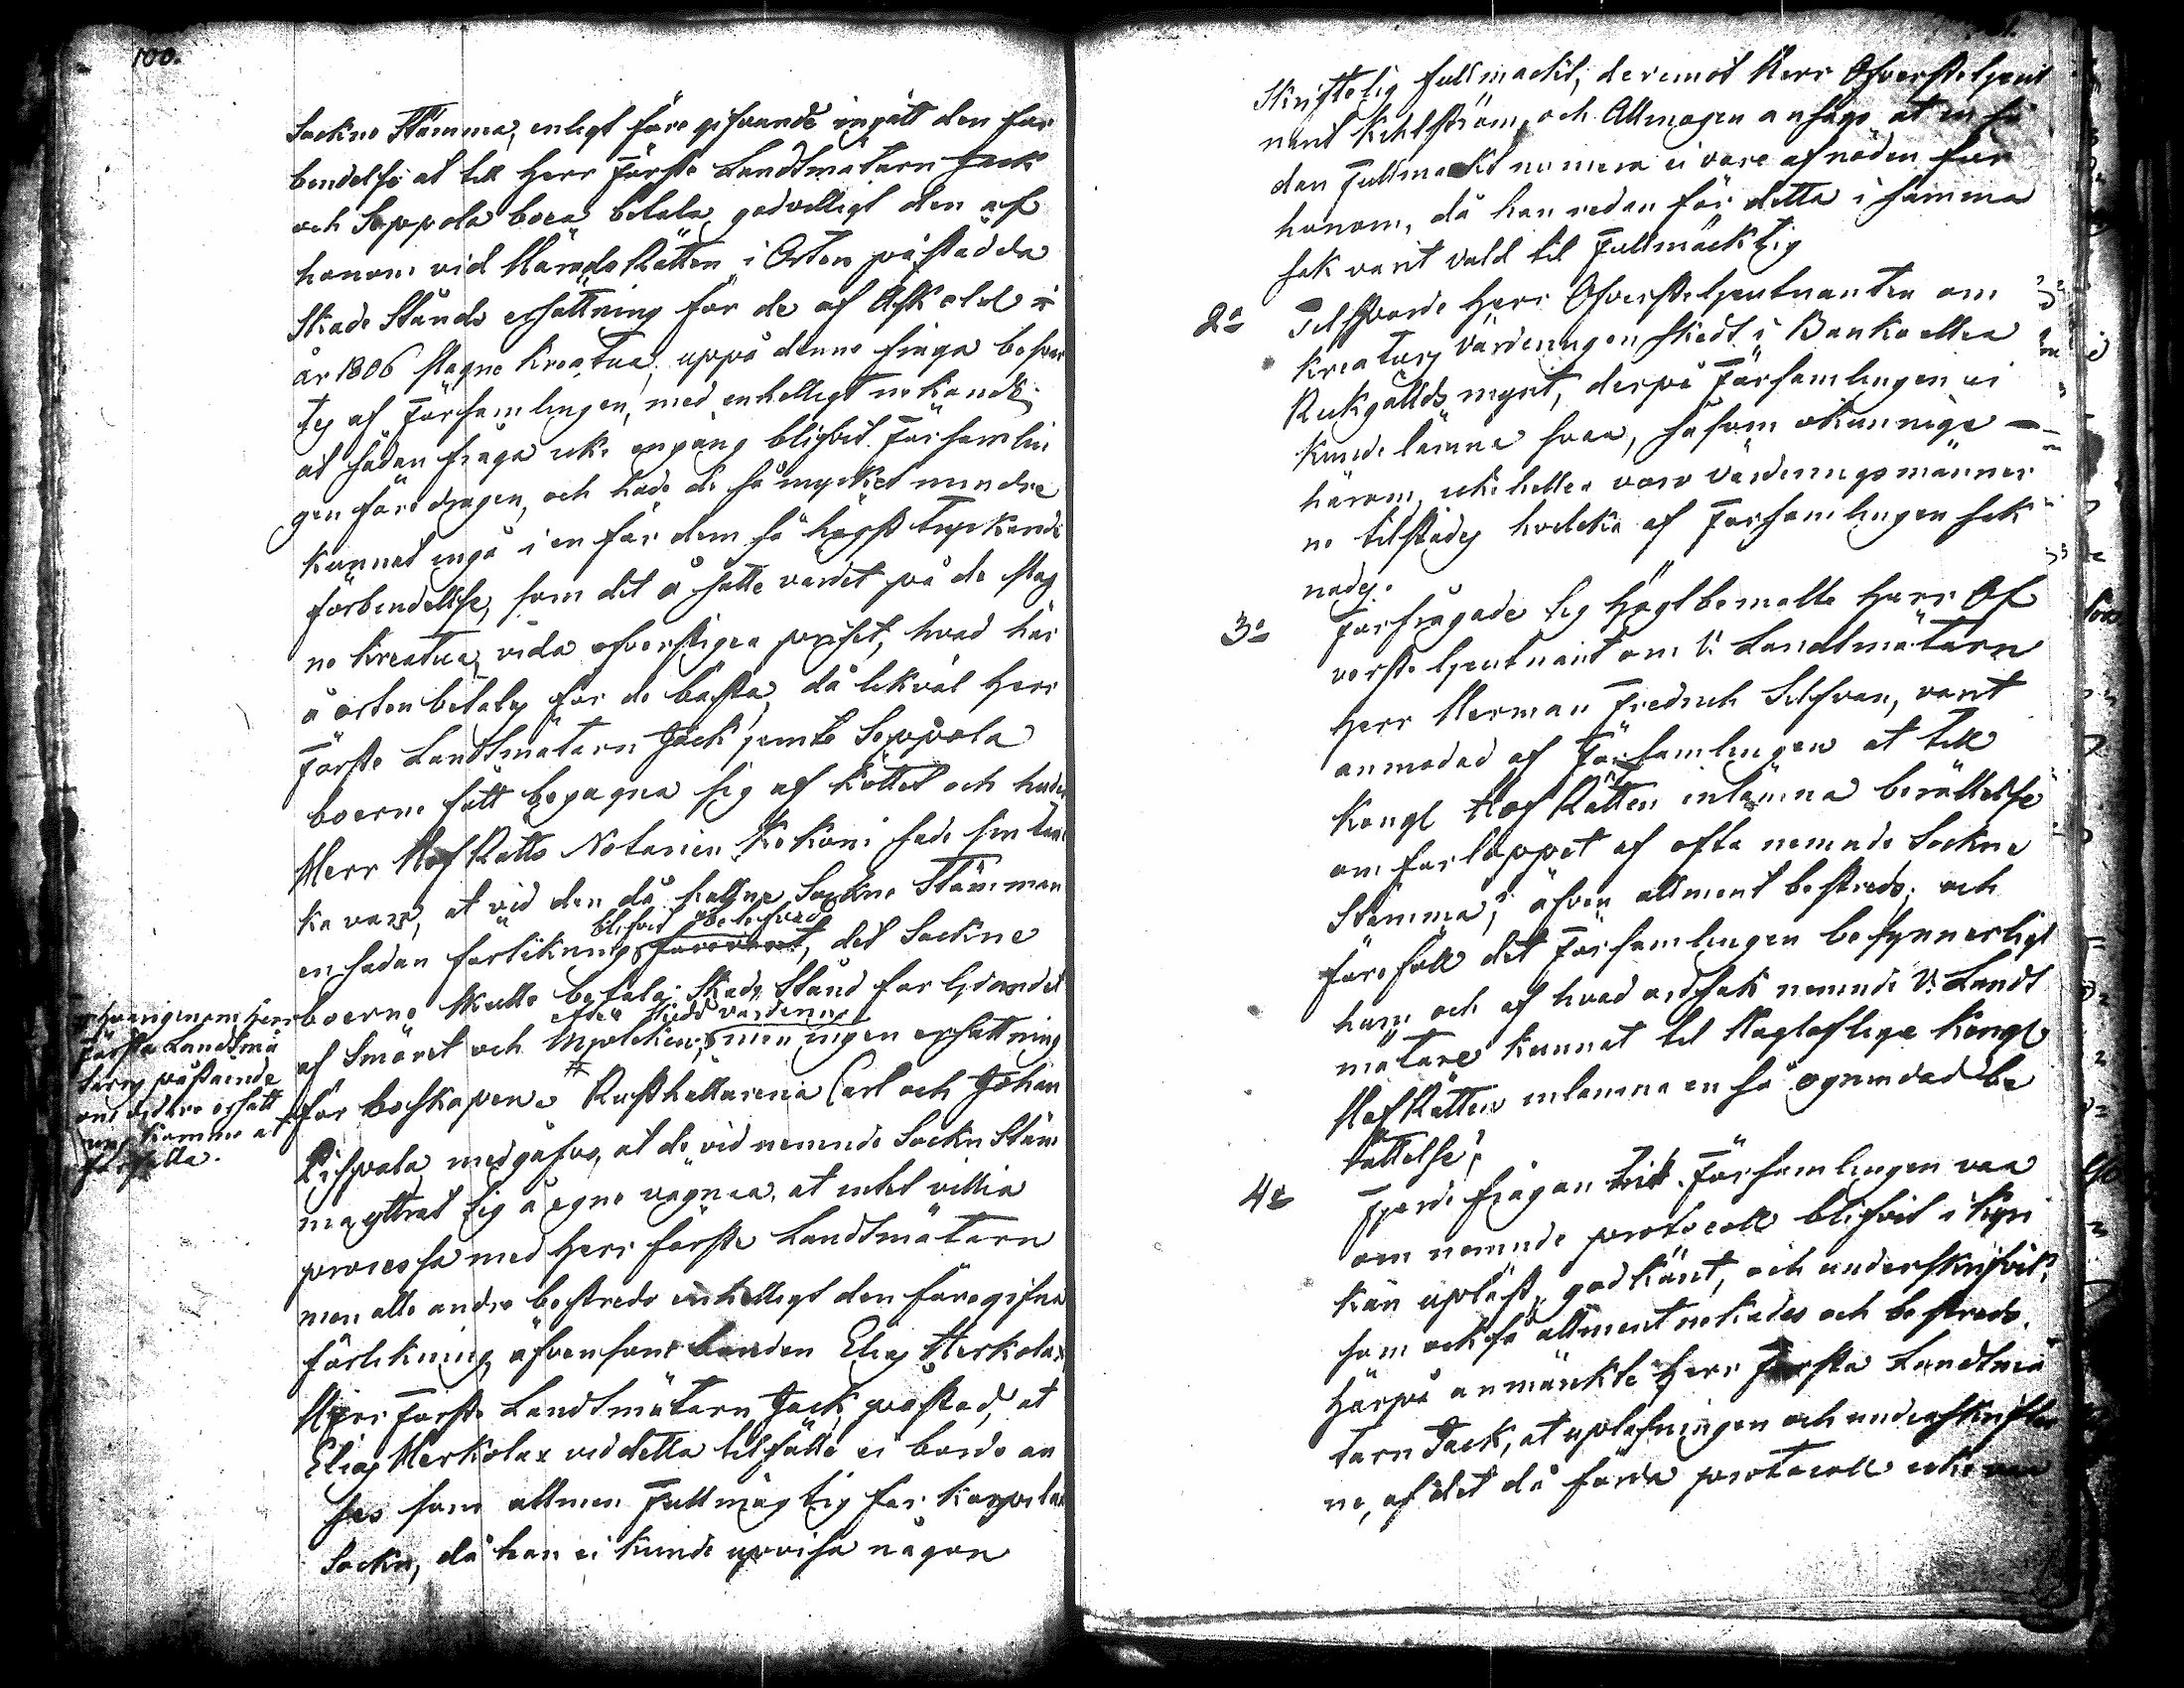 100.
Sockne Stämma, enligt föregifvande ingått den för
bindelse at till Herr Förste Landtmätarn Jack
och Seppola boer betala godvilligt den af
honom vid Härads Rätten i Orten påstådda
Skade Stånds ersättning för de af Åskeld i
år 1806 slagne Kreatur, uppå denne fråga besvar
tes af Församlingen, med enhelligt nekande
at sådan fråga icke engång blifvit Församlin
gen föredragen, och hade de så mycket mindre
kunnat ingå i en för dem så högst tryckande
förbindelse, som det å satte värdet på de slag
ne Kreatur, vida öfverstiger priset, hvad här
å orten betalas för de bästa, då likväl Herr
Förste Landtmätarn Jack jemte Seppola
boerne fått begagna sig af köttet och huden
Herr HofRätts Notarien Kekoni sade sin tan
ka vara, at vid den då hållne Sockne Stämman
blifvit
en sådan förlikning förevarit, det Sockne
boerne skulle betala Skade Stånd för lidandet
efter skedd värdering
af Smöret och Mjölken, men ingen ersättning
för boskapen. Rusthållarena Carl och Johan
Pispala, medgåfvo, at de vid nemnde Sockn Stäm
ma yttrat sig å egne vägnar, at intet villia
processa med Herr förste Landtmätarn
men alle andre bestredo enhelligt den föregifne
förlikning, äfvensom bonden Elias Herkolax
Herr Förste Landtmätarn Jack påstod, at
Elias Herkolax vid detta tilfälle ei borde an
ses som allmen Fullmägtig för
Sockn, då han ei kunde upvisa någon
hvarigenom Herr
Förste Landtmä
tarns påstående
om vidare ersätt
ning komme at
förfalla.
Skriftelig fullmackt, deremot Herr Öfverste Lieut
nant Kihlström, och Allmogen ansågo at en så
dan Fullmackt numera ei vore af nöden för
honom, då han redan för detta i samma
sak varit vald til Fullmäcktig
2o Herr Öfverstelieutnanten om
Kreaturs värderingen skedt i Banko eller
Rickgällds mynt, derpå Församlingen ei
kunde lämna svar, såsom okunnige
härom, icke heller voro Värderingsmänner
ne tilstädes hvilka af Församlingen sak
nades.
3o Förfrågade sig Högtbemälte Herr Öf
verste lieutnant om V. Landtmätarn
Herr Herman Fredrich Silfvan, varit
anmodad af Församlingen at till
Kongl HofRätten inlämna berättelse
om förloppet af ofta nemnde Sockne
Stämma; äfven allment bestreds, och
föreföll det Församlingen besynnerligt
huru och af hvad ordsak nemnde V. Landt
mätare kunnat til Höglofliga Kongl
HofRätten inlämna en så ogrundad be
rättelse;
4o Fjerde frågan till Församlingen var
om nemnde protocoll blifvit i Kyr
kan upläst, godkänt, och underskrifvit?
som också allment nekades och bestreds.
Härpå anmärkte Herr Förste Landtmä
tarn Jack, at upläsningen och underskrifter
ne, af det då förda protocoll icke var